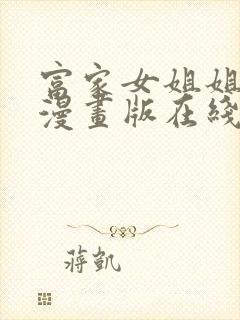 富家女姐姐
漫畫版在綫
蔣凱